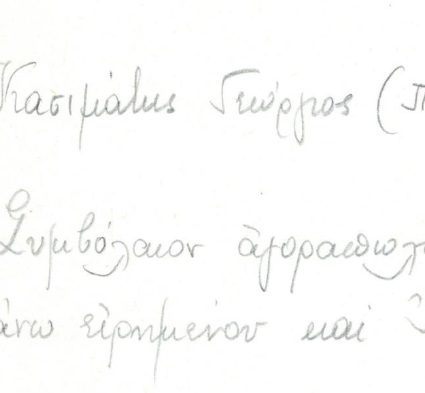 Κασιμάτης Γεώργιος (Π
Συμβόλαιον ἀγοραπωλη
ἄνω εἰρημένου καί